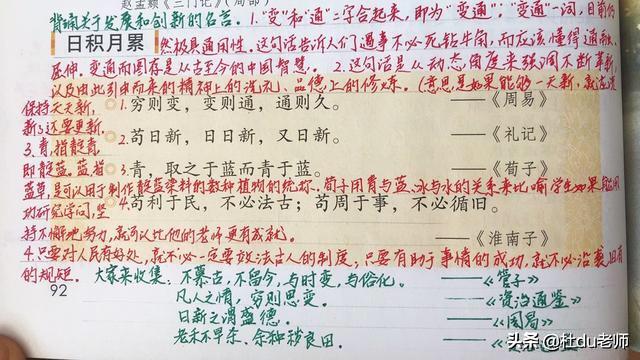 赵孟頫《三门记》（局部）
背诵关于发展和创新的名言。1."变"和"通"二字合起来，即为"变通"，"变通"一词，目前仍
日积月累
然极具通用性。这句话告诉人们遇事不必死钻牛角，而应该懂得通融、
屈伸。变通而图存是从古至今的中国智慧。2.这句话是从动态角度来强调不断革新，
以及由此引申而来的精神上的洗礼、品德上的修炼。（意思是如果能够一天新，就应
保持天天新，
1.穷则变，变则通，通则久。 ——《周易》
新了还要更新
2.苟日新，日日新，又日新。 ——《礼记》
3.青，指靛青，
3.青，取之于蓝而青于蓝。 ——《荀子》
即靛蓝。蓝，指
蓝草，是可以用于制作靛蓝染料的数种植物的统称。荀子用青与蓝、冰与水的关系来比喻学生如果能用
功研究学问，坚
4.苟利于民，不必法古；苟周于事，不必循旧。
持不懈地努力，就可以比他的老师更有成就。
——《淮南子》
4.只要对人民有好处，就不必一定要效法古人的制度；只要有助于事情的成功，就不必沿袭旧有
的规矩。
大家来收集：不慕古，不留今，与时变，与俗化。 ——《管子》
92
凡人之情，穷则思变。 ——《资治通鉴》
日新之谓盛德。 ——《周易》
老禾不早杀，余种秽良田。
头条 @杜du老师